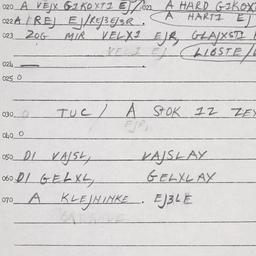 020 A VEJX G1KOXT1 EJ/021 A HARD G1KOX
022 A/REJ EJ/REJ3EJ3R. A HART1 EJ
023 ZOG MIR VELX1 EJR, GLAJXST1
(LIBSTE/
024
025 0
030 TUC/ A STOK 1Z ZEX
040 0
050 DI VAJSL, VAJSLAY
060 DI GELXL, GELXLAY
070 A KLEJNINKE. EJ3LE